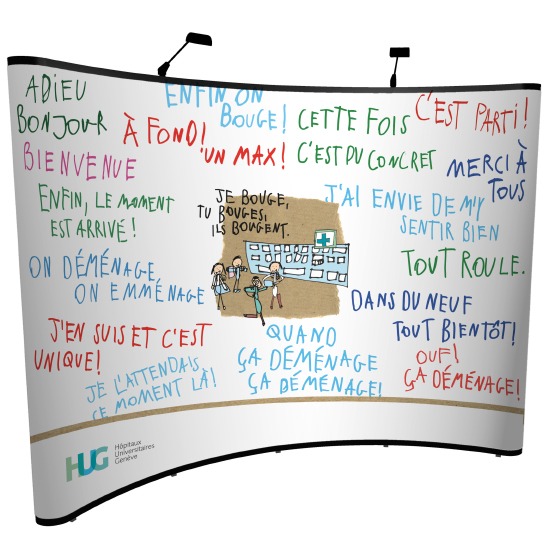 ADIEU
BONJOUR
ENFIN ON
BOUGE!
À FOND!
UN MAX!
CETTE FOIS
C'EST DU CONCRET
C'EST PARTI!
BIENVENUE
MERCI À
TOUS
ENFIN, LE MOMENT
EST ARRIVÉ!
JE BOUGE,
TU BOUGES,
ILS BOUGENT.
J'AI ENVIE DE M'Y
SENTIR BIEN
TOUT ROULE.
ON DÉMÉNAGE,
ON EMMÉNAGE
DANS DU NEUF
TOUT BIENTÔT!
J'EN SUIS ET C'EST
UNIQUE!
QUAND
ÇA DÉMÉNAGE
ÇA DÉMÉNAGE!
OUF!
ÇA DÉMÉNAGE!
JE L'ATTENDAIS
CE MOMENT LÀ!
HUG
Hôpitaux
Universitaires
Genève